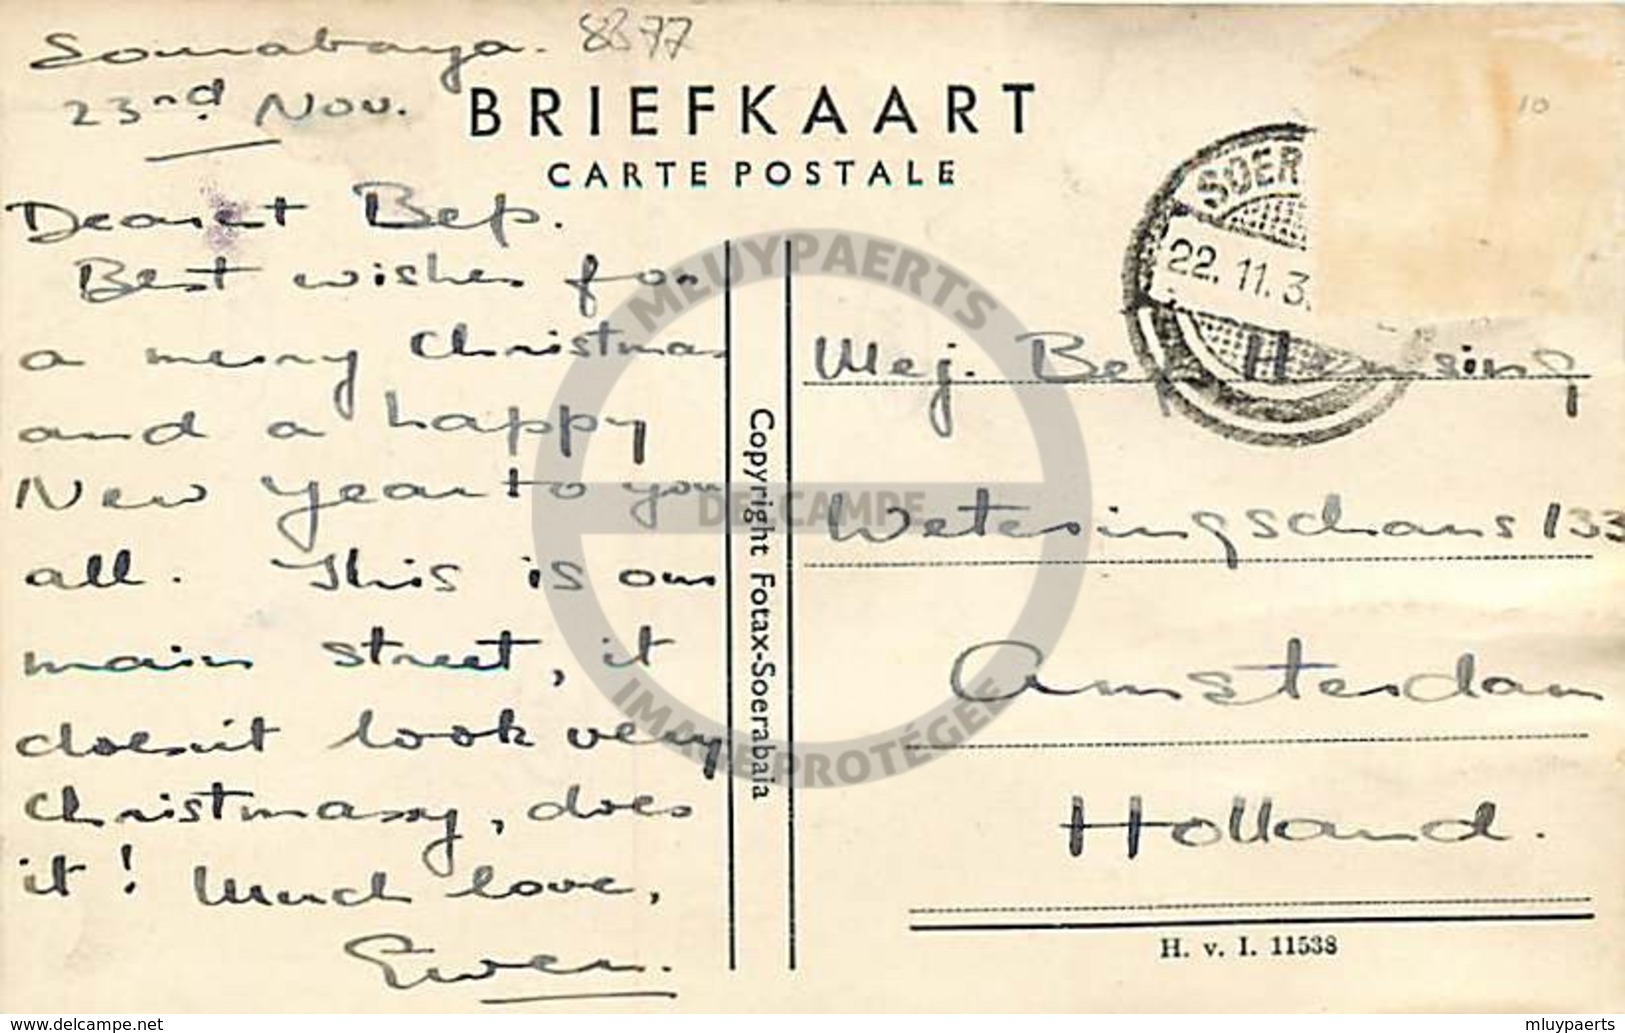 Sourabaya. 8877
23nd Nov.
BRIEFKAART
CARTE POSTALE
10
SOER
22. 11. 3
Dearest Bep.
Best wishes for
a merry Christmas
and a happy
New Year to you
all. This is our
main street, it
doesn't look very
Christmassy, does
it! Much love,
Ewen.
Copyright Fotax-Soerabaia
Mej.
Weteringschans 133
Amsterdam
Holland.
H. v. I. 11538
MLUYPAERTS
DELCAMPE
IMAGE PROTÉGÉE
www.delcampe.net
mluypaerts